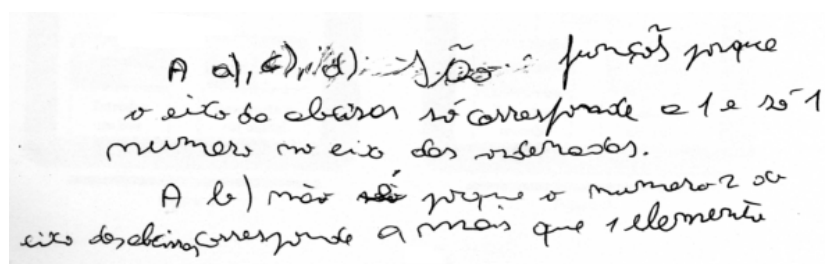 A a), c), d) São funçõs porque
o eixo da abcissas só corresponde a 1 e só 1
numero no eixo das ordenadas.
A b) não porque o numero 2 do
eixo das abcissas corresponde a mais que 1 elemento